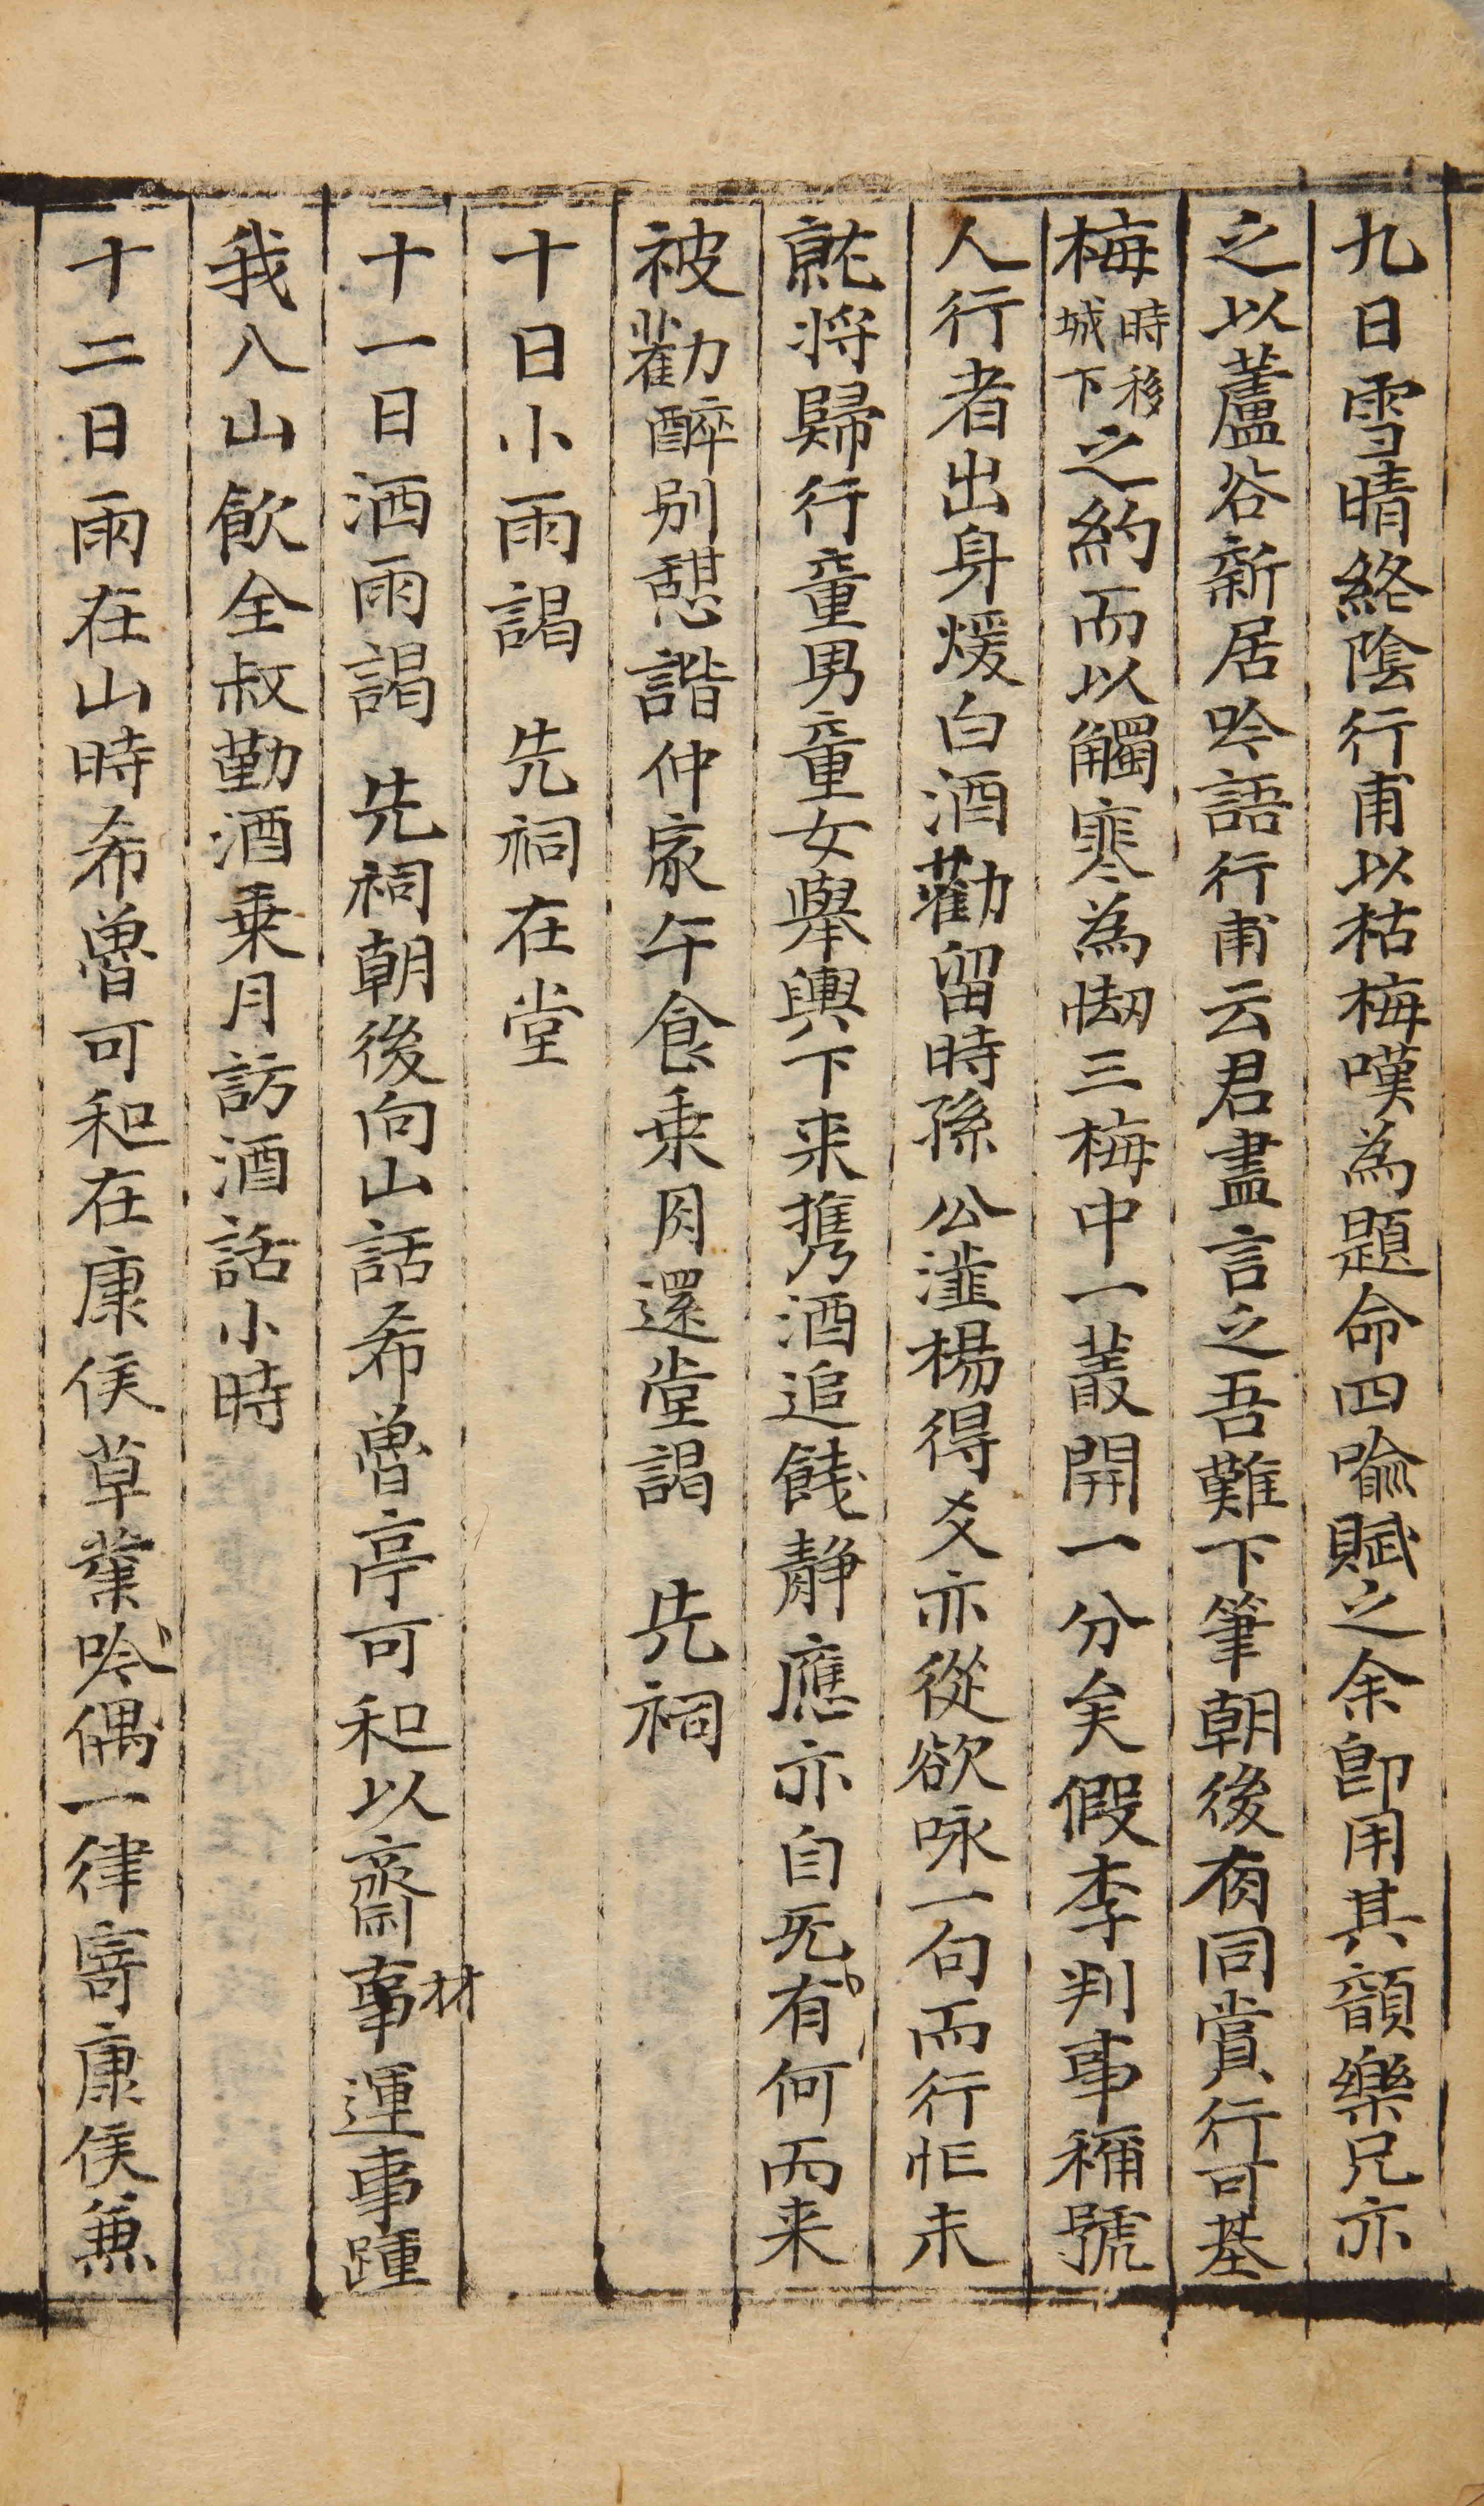 九日雪晴終陰行甫以枯梅嘆為題命四喩賦之余卽用其韻樂兄亦
之以蘆谷新居吟語行甫云君盡言之吾難下筆朝後有同賞行可基
梅時移城下之約而以觸寒為㤼三梅中一叢開一分矣假李判事稱號
人行者出身煖白酒勸留時孫公湋楊得爻亦從欲咏一句而行忙未
就將歸行童男童女舉輿下来携酒追餞靜應亦自旡有何而来
被勸醉別憇諧仲家午食乗月還堂謁 先祠
十日小雨謁 先祠在堂
十一日洒雨謁 先祠朝後向山話希魯亭可和以齋事材運事踵
我八山飮全叔勤酒乗月訪酒話小時
十二日雨在山時希魯可和在康侯草葉吟偶一律寄康侯兼